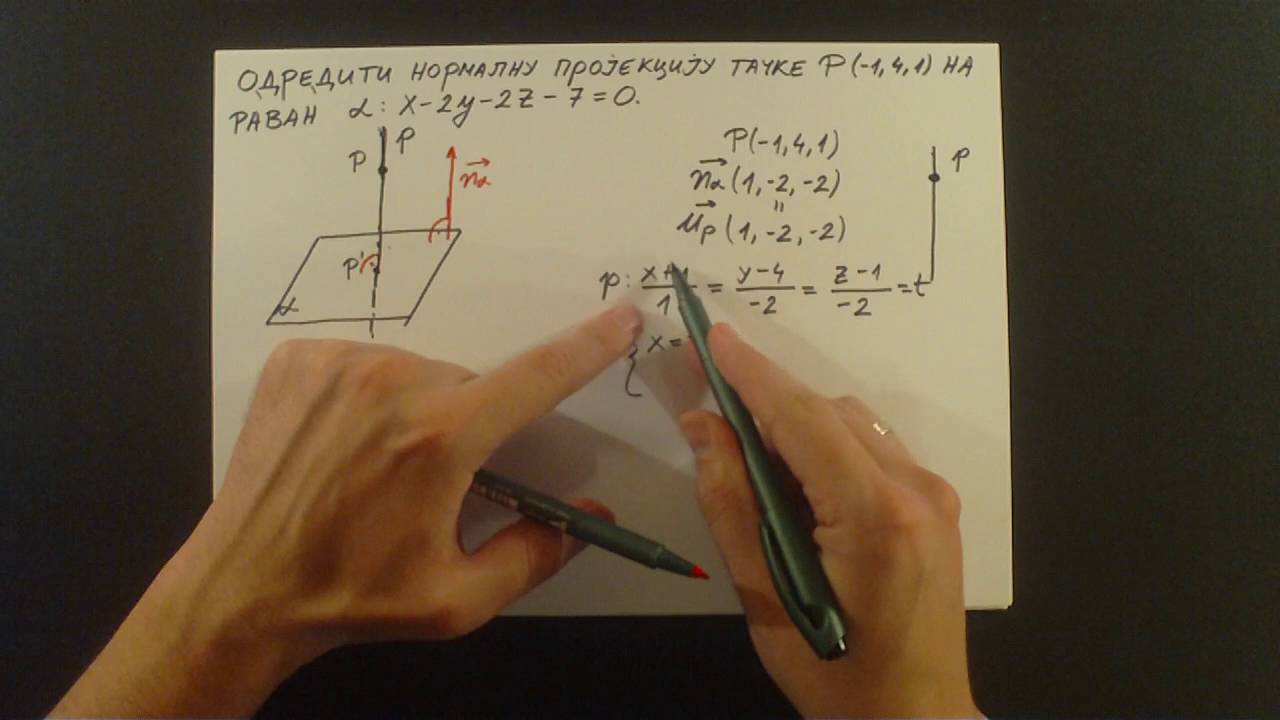 ОДРЕДИТИ НОРМАЛНУ ПРОЈЕКЦИЈУ ТАЧКЕ P(-1,4,1) НА
РАВАН α: x-2y-2z-7=0.
p
P
n⃗α
P'
α
P(-1,4,1)
n⃗α(1,-2,-2)
=
u⃗p(1,-2,-2)
p: x+1/1 = y-4/-2 = z-1/-2 = t
{ x=
p